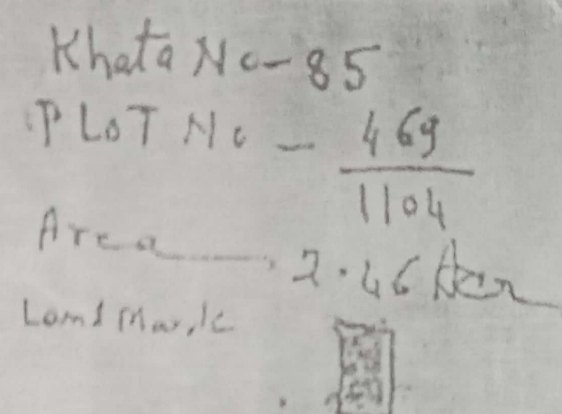 Khata No - 85
PLOT No - 469
1104
Area 2.46 Acr
Land Mark